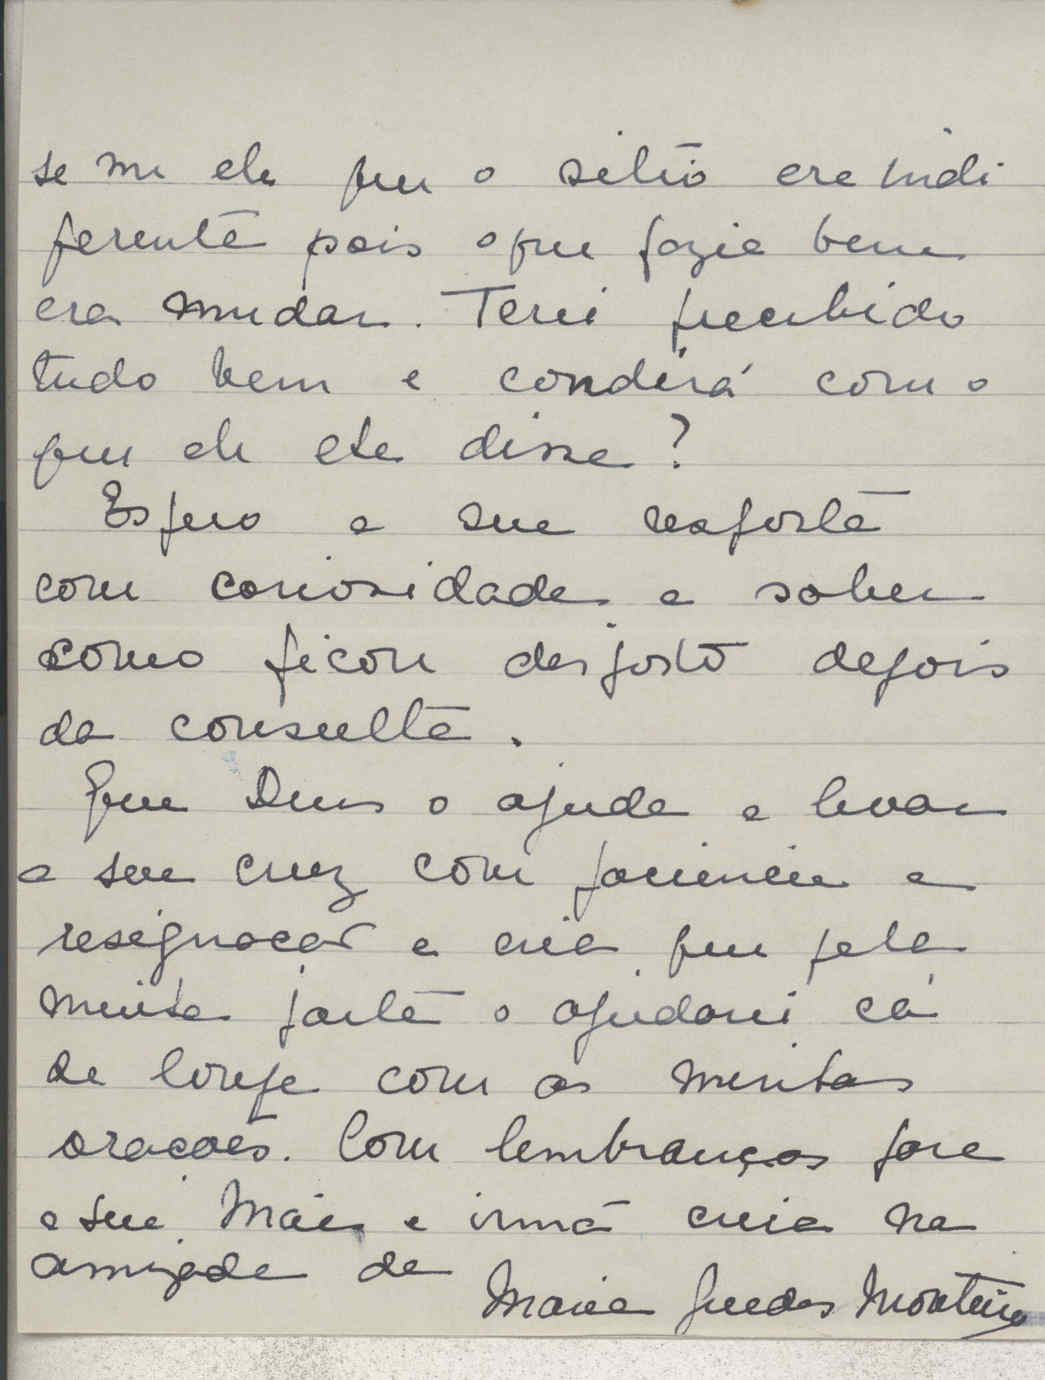 se me ele que o sitio era indi
ferente pois o que fazia bem
era mudar. Terei percebido
tudo bem e condirá com o
que ele lhe disse?
Espero a sua resposta
com coriosidade e saber
como ficou desposto depois
da consulta.
Que Deus o ajude a levar
a sua cruz com paciencia e
resignacao e creia que pela
minha parte o ajudarei cá
de longe com as minhas
oracoes. Com lembranças para
a sua Mãe e irmã creia na
amizade de
Maria Guedes Monteiro